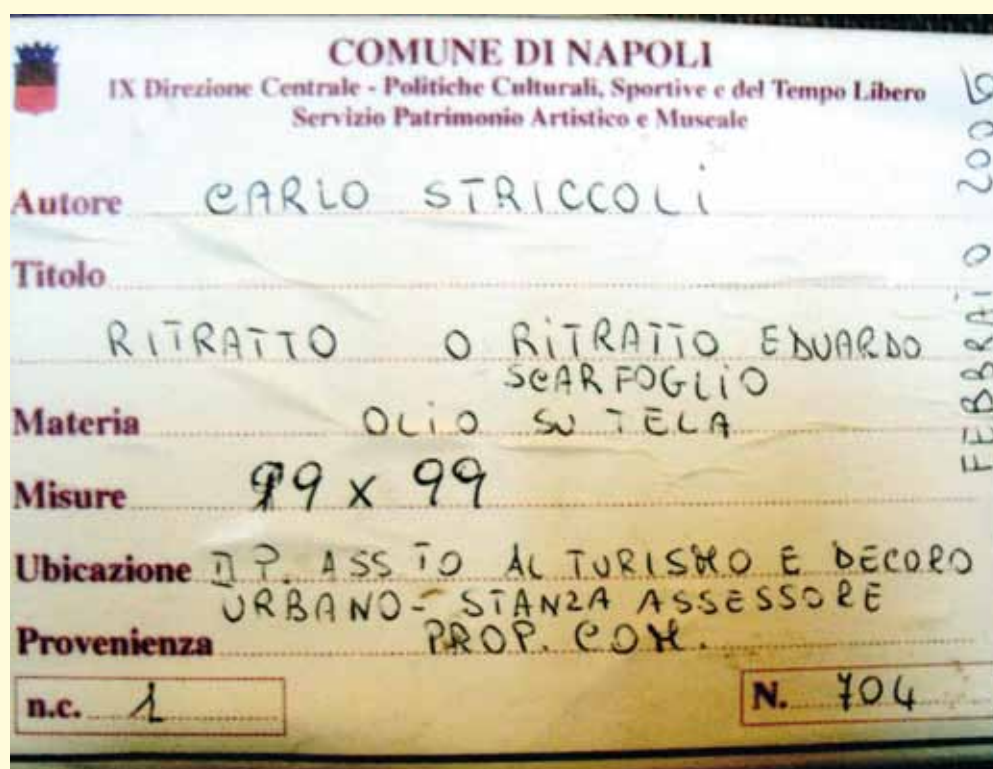 COMUNE DI NAPOLI
IX Direzione Centrale - Politiche Culturali, Sportive e del Tempo Libero
Servizio Patrimonio Artistico e Museale
Autore CARLO STRICCOLI
Titolo
RITRATTO O RITRATTO EDUARDO
SCARFOGLIO
Materia OLIO SU TELA
Misure 99 x 99
Ubicazione ASS TO AL TURISMO E DECORO
URBANO - STANZA ASSESSORE
Provenienza PROP. COM.
n.c. 1
N. 704
FEBBRAIO 2006